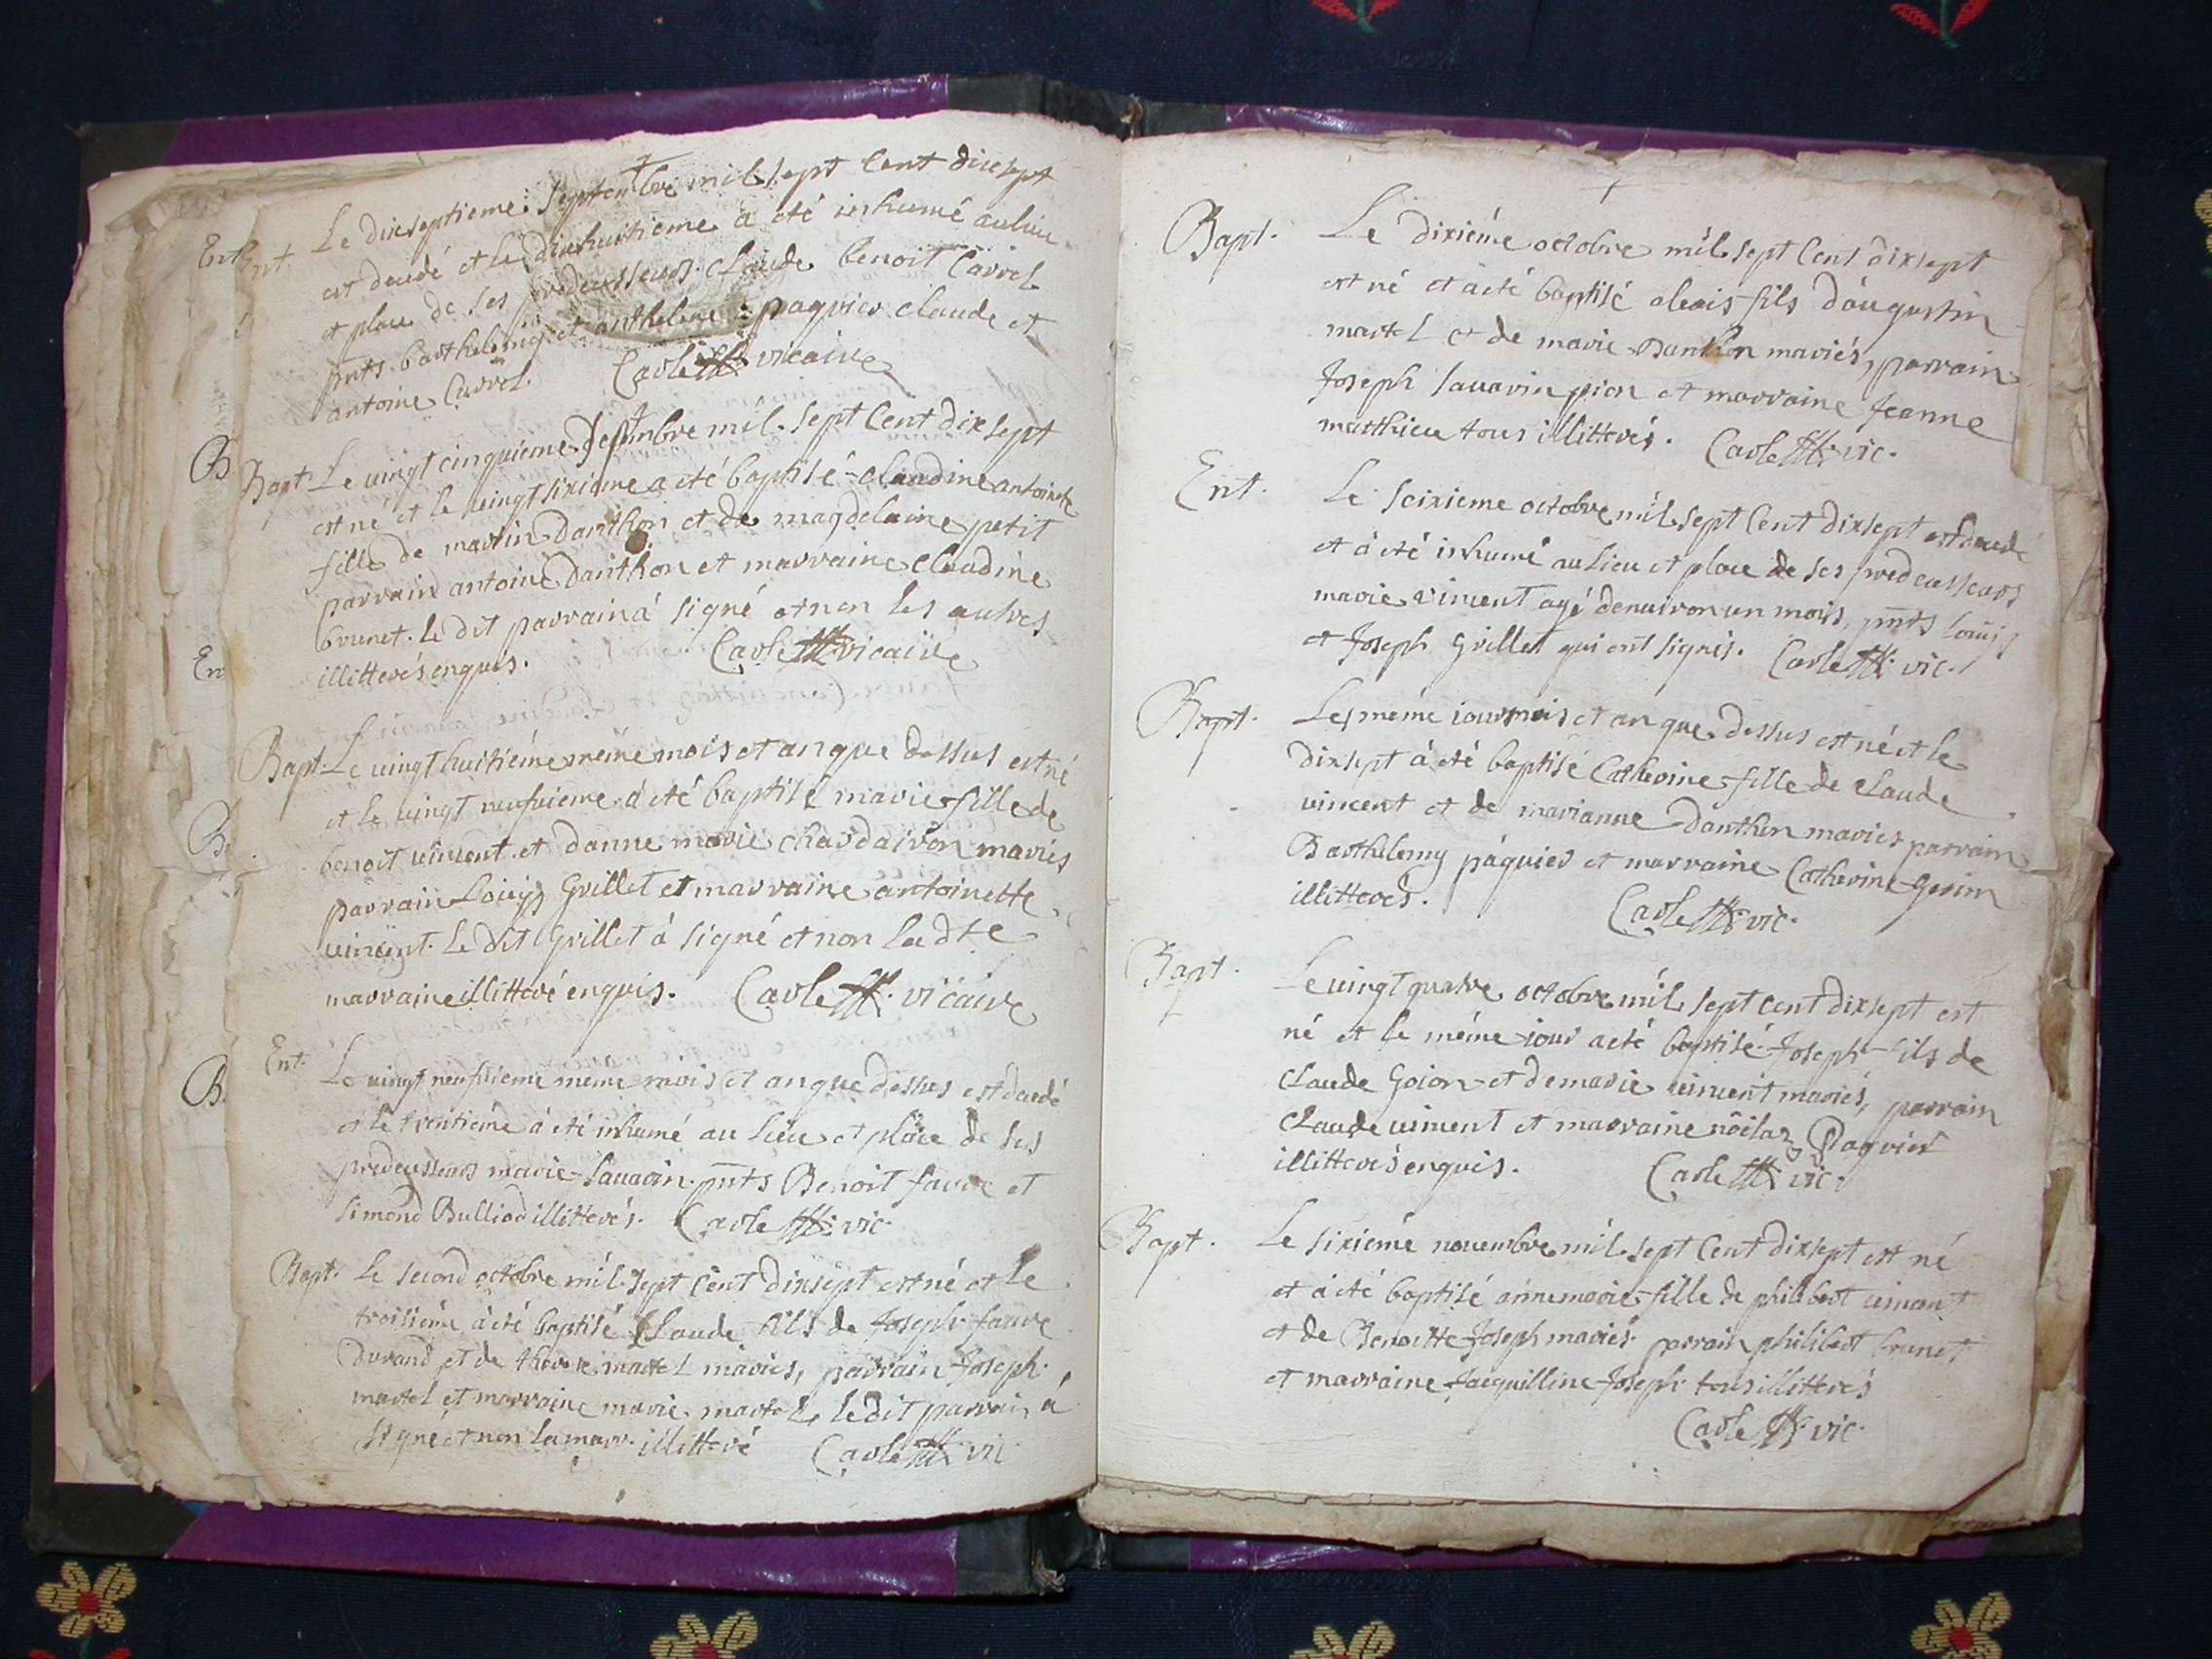 Ent. Le dixseptieme septembre mil sept Cent dixsept
est decedé et le dixhuitieme a été inhumé au lieu
et place de ses predecesseurs Claude benoit Carrel
pnts barthelemy et anthelme paquier claude et
antoine Carrel. Carle vicaire
Bapt. Le vingt cinquieme septembre mil sept Cent dixsept
est né et le vingt sixieme a eté baptisé claudine antoinette
fille de martin Danthon et de magdelaine petit
parrain antoine Danthon et marraine claudine
brunet. le dit parrain à signé et non les autres
illitterés enquis. Carle vicaire
Bapt. Le vingt huitiéme méme mois et an que dessus est né
et le vingt neufuieme à été baptisé marie fille de
benoit vincent et danne marie chardairon mariés
parrain Loüys Grillet et marraine antoinette
vincent. Le dit Grillet à signé et non la dte
marraine illitteré enquis. Carle vicaire
Ent. Le vingt neufuieme meme mois et an que dessus est decedé
et le trentiéme à été inhumé au lieu et place de ses
predecesseurs marie Sauarin pnts Benoit faure et
Simond Bulliod illitterés. Carle vic.
Bapt. Le second octobre mil sept Cent dixsept est né et le
troisiéme à été baptisé Claude fils de Joseph faure
Durand et de therese martel mariés, parrain Joseph
martel et marraine marie martel, le dit parrain à
signé et non la marr. illitteré Carle vic
Bapt. Le dixiéme octobre mil sept Cent dixsept
est né et à été baptisé alexis fils d'augustin
martel et de marie Danthon mariés, parrain
Joseph Sauarin pion et marraine Jeanne
matthieu tous illitterés. Carle vic.
Ent. Le seixieme octobre mil sept Cent dixsept est decedé
et à été inhumé au lieu et place de ses predecesseurs
marie vincent agé denuiron un mois, pnts Loüis
et Joseph Grillet qui ont signés. Carle vic.
Bapt. Les méme iour mois et an que dessus est né et le
dixsept à été baptisé Catherine fille de claude
vincent et de marianne Danthon mariés parrain
Barthelemy páquier et marraine Catherine
illitterés. Carle vic.
Bapt. Le vingt quatre octobre mil sept cent dixsept est
né et le méme iour a eté baptisé Joseph fils de
Claude Goion et de marie vincent mariés, parrain
Claude vincent et marraine Paquier
illitterés enquis. Carle vic.
Bapt. Le sixiéme nouembre mil sept Cent dixsept est né
et à été baptisé annemarie fille de philibert vincent
et de Benoitte Joseph mariés parrain philibert brunet
et marraine Jacquilline Joseph tous illitterés
Carle vic.